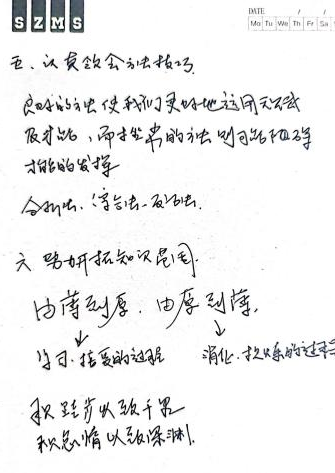 SZMS
DATE / /
Mo Tu We Th Fr Sa
五、认真领会方法技巧
良好的方法使我们更好地运用天赋
及才能,而拙劣的方法则可能阻碍
才能的发挥
六 努力开拓知识范围
由薄到厚,由厚到薄,
学习、接受的过程 消化、提炼的过程
积跬步以致千里
积怠惰以致深渊